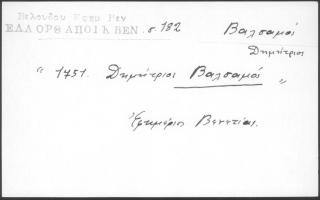 Βελουδου Χρυσ Βεν
ΕΛΛ ΟΡΘ ΑΠΟΙΚ ΒΕΝ. σ. 182 Βαλσαμός
Δημήτριος
" 1751. Δημήτριος Βαλσαμός "
Ἐφημέριος Βενετίας.